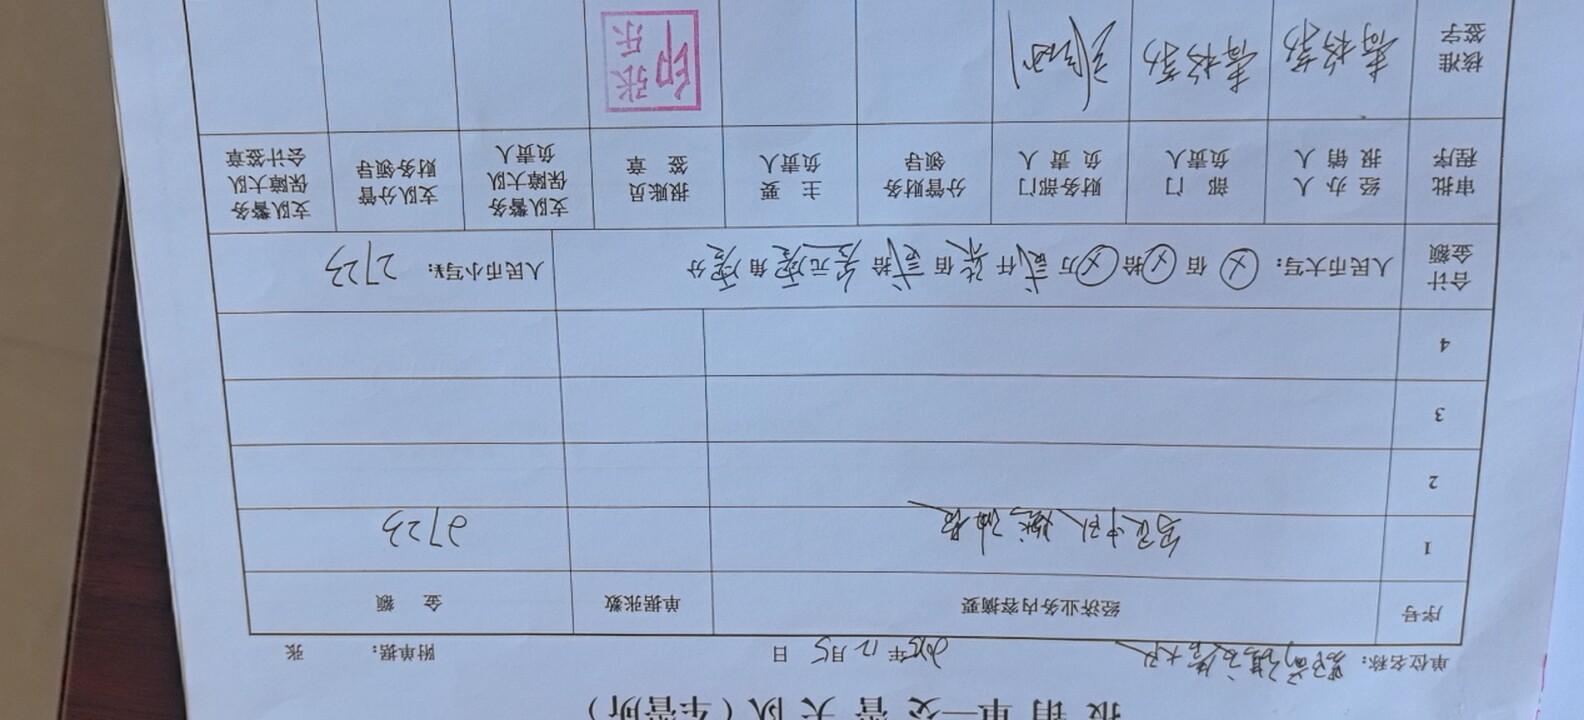 报销单—交警大队（车管所）
单位名称： 年12月5日 附单据： 张
序号 经济业务内容摘要 单据张数 金额
1 中队燃油费 2723
2
3
4
合计金额 人民币大写： ⊗佰⊗拾⊗万贰仟柒佰贰拾叁元零角零分 人民币小写¥: 2723
审批程序 经办人报销人 部门负责人 财务部门负责人 分管财务领导 主要负责人 报账员签章 支队警务保障大队负责人 支队分管财务领导 支队警务保障大队会计签章
核准签字 张乐印